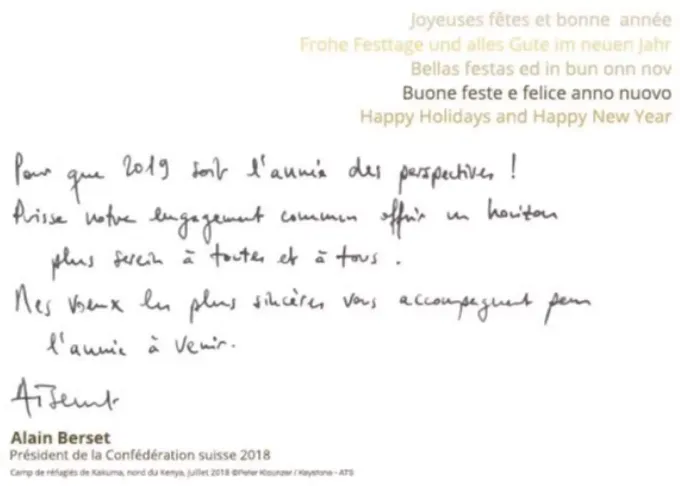 Joyeuses fêtes et bonne année
Frohe Festtage und alles Gute im neuen Jahr
Bellas festas ed in bun onn nov
Buone feste e felice anno nuovo
Happy Holidays and Happy New Year
Pour que 2019 soit l'année des perspectives !
Puisse notre engagement commun offrir un horizon
plus serein à toutes et à tous.
Mes vœux les plus sincères vous accompagnent pour
l'année à venir.
Alain Berset
Président de la Confédération suisse 2018
Camp de réfugiés de Kakuma, nord du Kenya, juillet 2018 ©Peter Klaunzer / Keystone - ATS